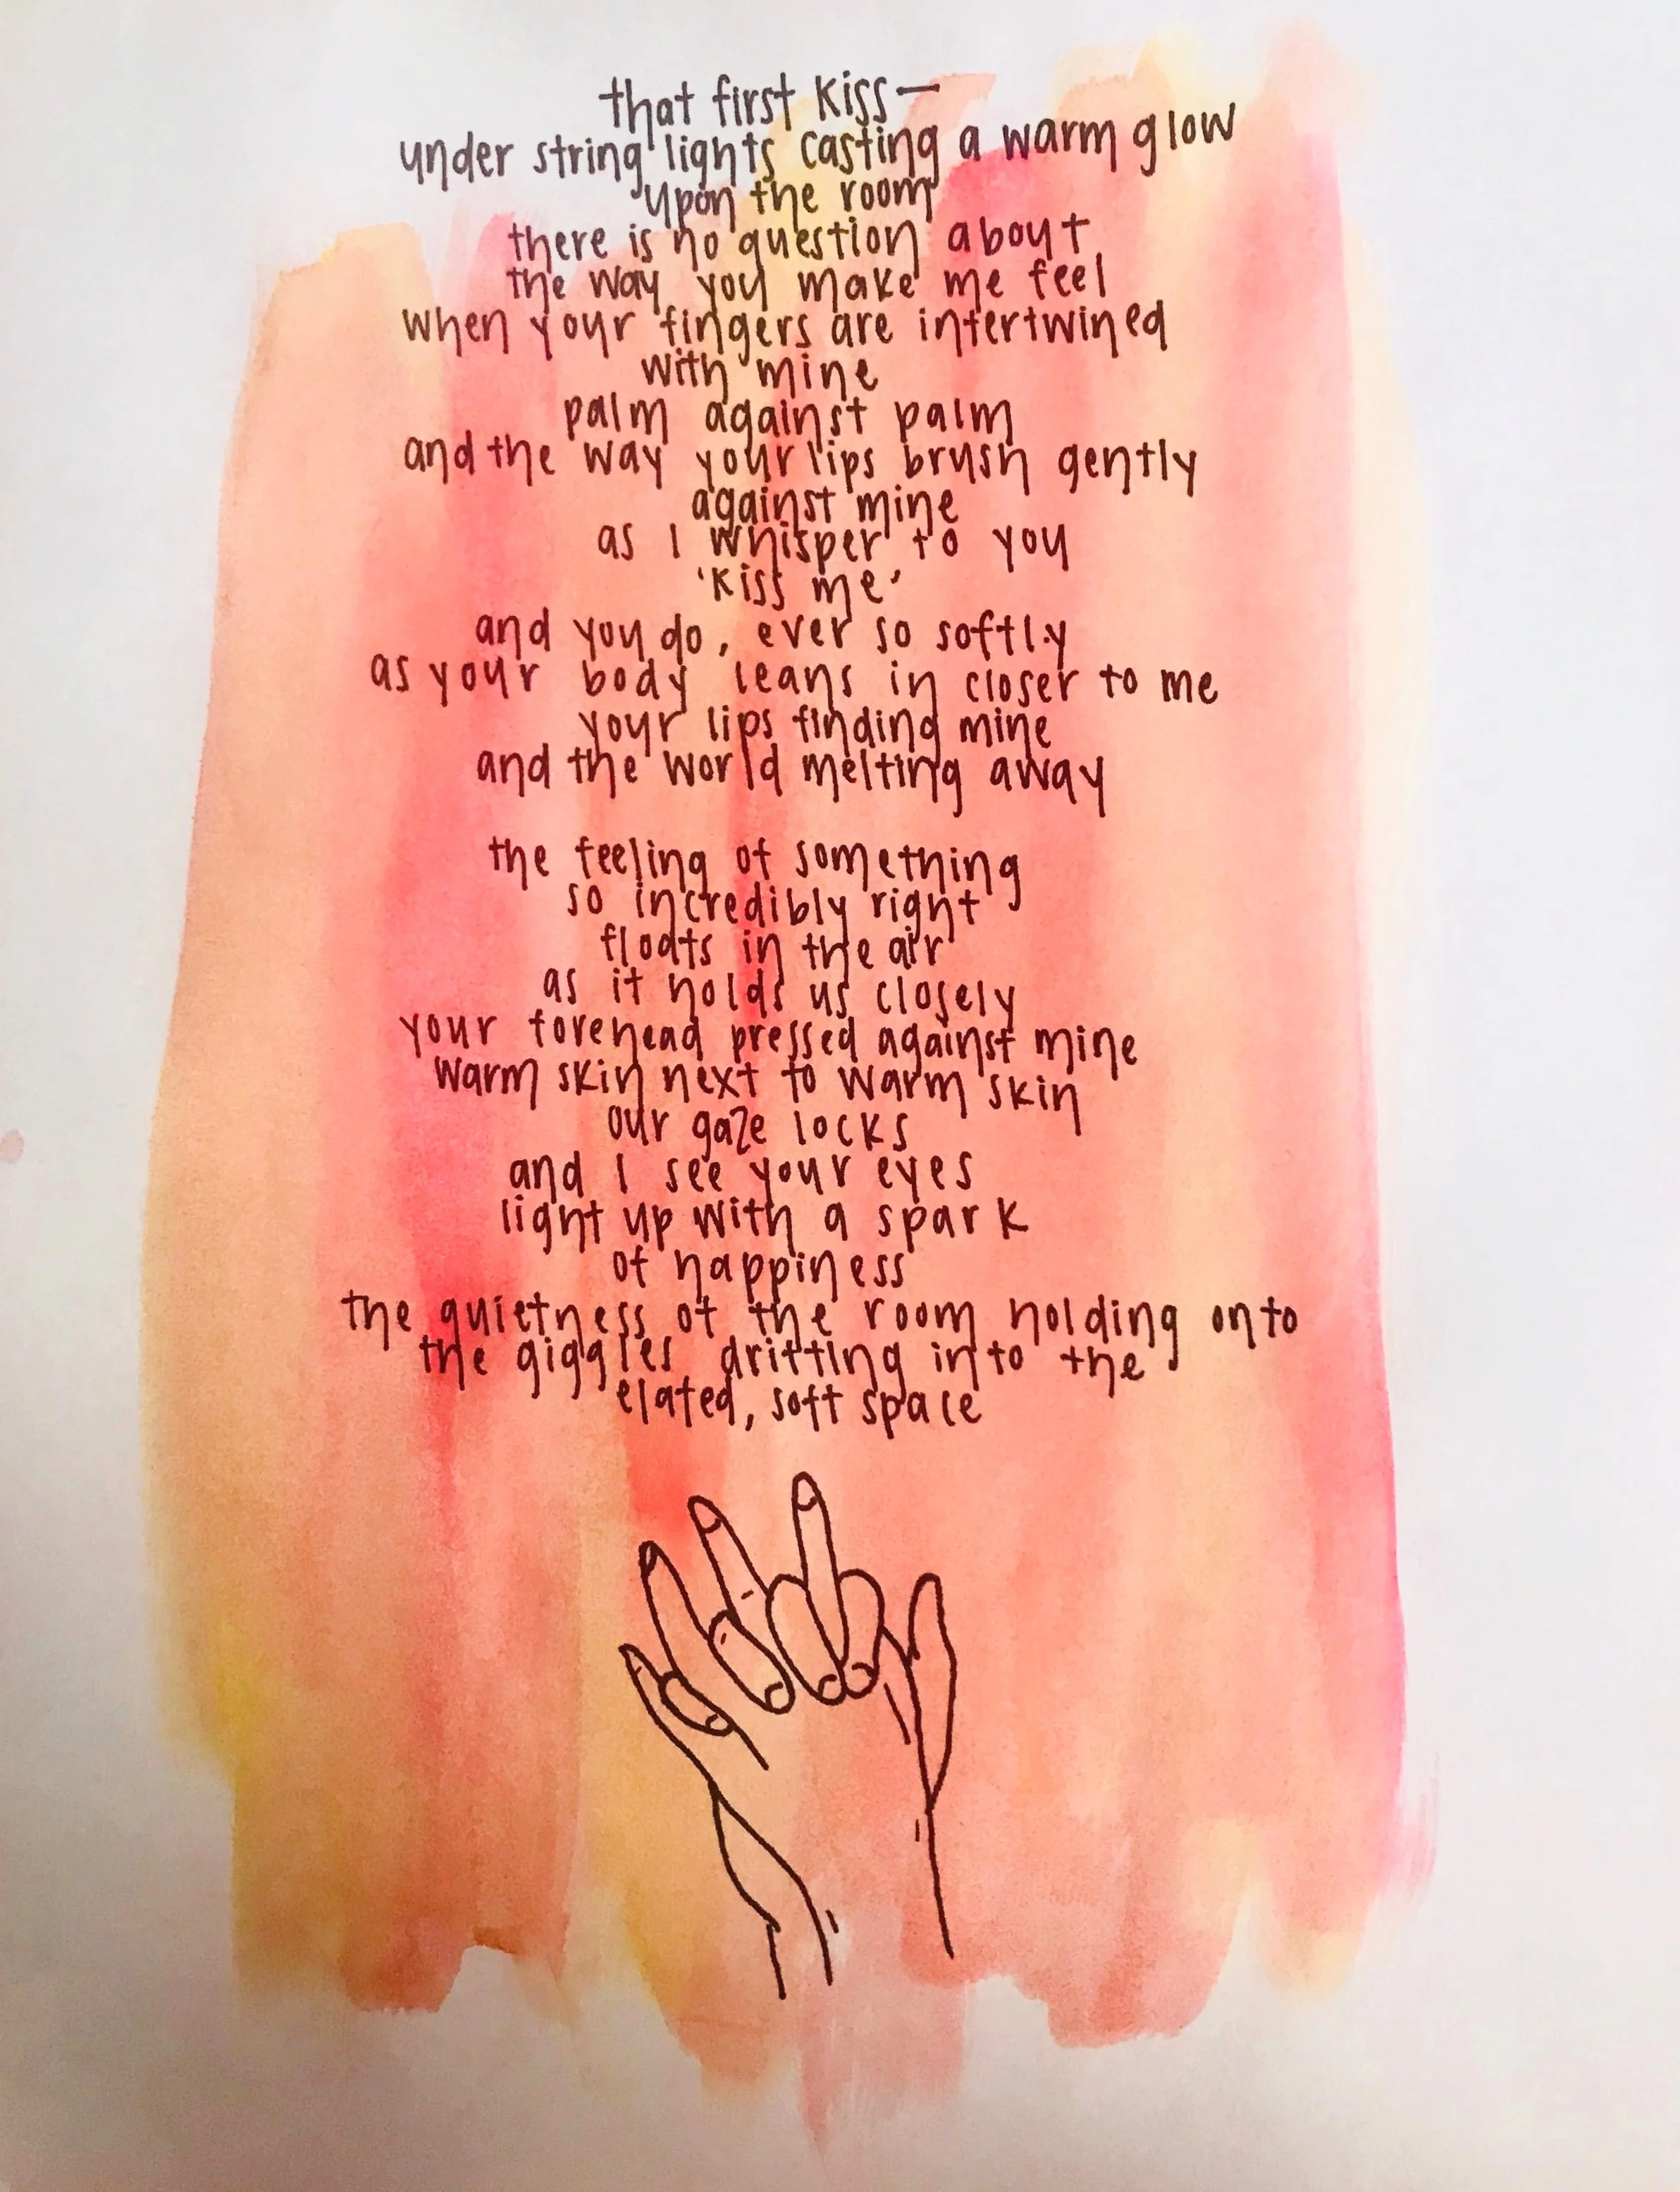 that first kiss—
under string lights casting a warm glow
upon the room
there is no question about
the way you make me feel
when your fingers are intertwined
with mine
palm against palm
and the way your lips brush gently
against mine
as I whisper to you
'kiss me'
and you do, ever so softly
as your body leans in closer to me
your lips finding mine
and the world melting away
the feeling of something
so incredibly right
floats in the air
as it holds us closely
your forehead pressed against mine
warm skin next to warm skin
our gaze locks
and I see your eyes
light up with a spark
of happiness
the quietness of the room holding onto
the giggles drifting into the
elated, soft space